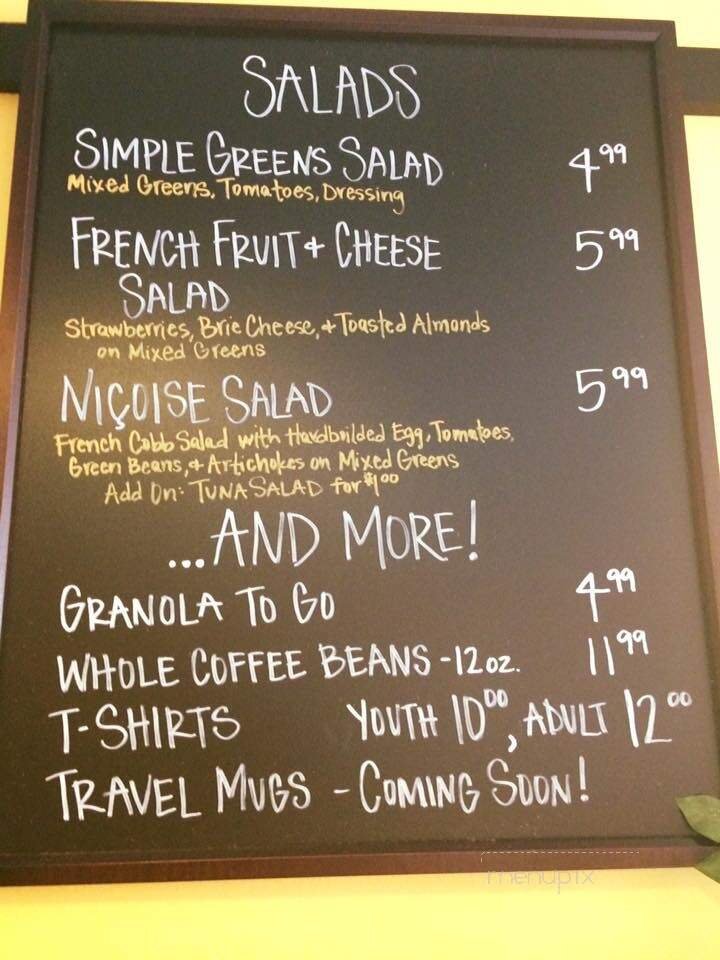 SALADS
SIMPLE GREENS SALAD 4.99
Mixed Greens, Tomatoes, Dressing
FRENCH FRUIT + CHEESE 5.99
SALAD
Strawberries, Brie Cheese, + Toasted Almonds
on Mixed Greens
NIÇOISE SALAD 5.99
French Cobb Salad with Hardboilded Egg, Tomatoes,
Green Beans, + Artichokes on Mixed Greens
Add On: TUNA SALAD for $1.00
...AND MORE!
GRANOLA TO GO 4.99
WHOLE COFFEE BEANS - 12 oz. 11.99
T-SHIRTS YOUTH 10.00, ADULT 12.00
TRAVEL MUGS - COMING SOON!
menupix